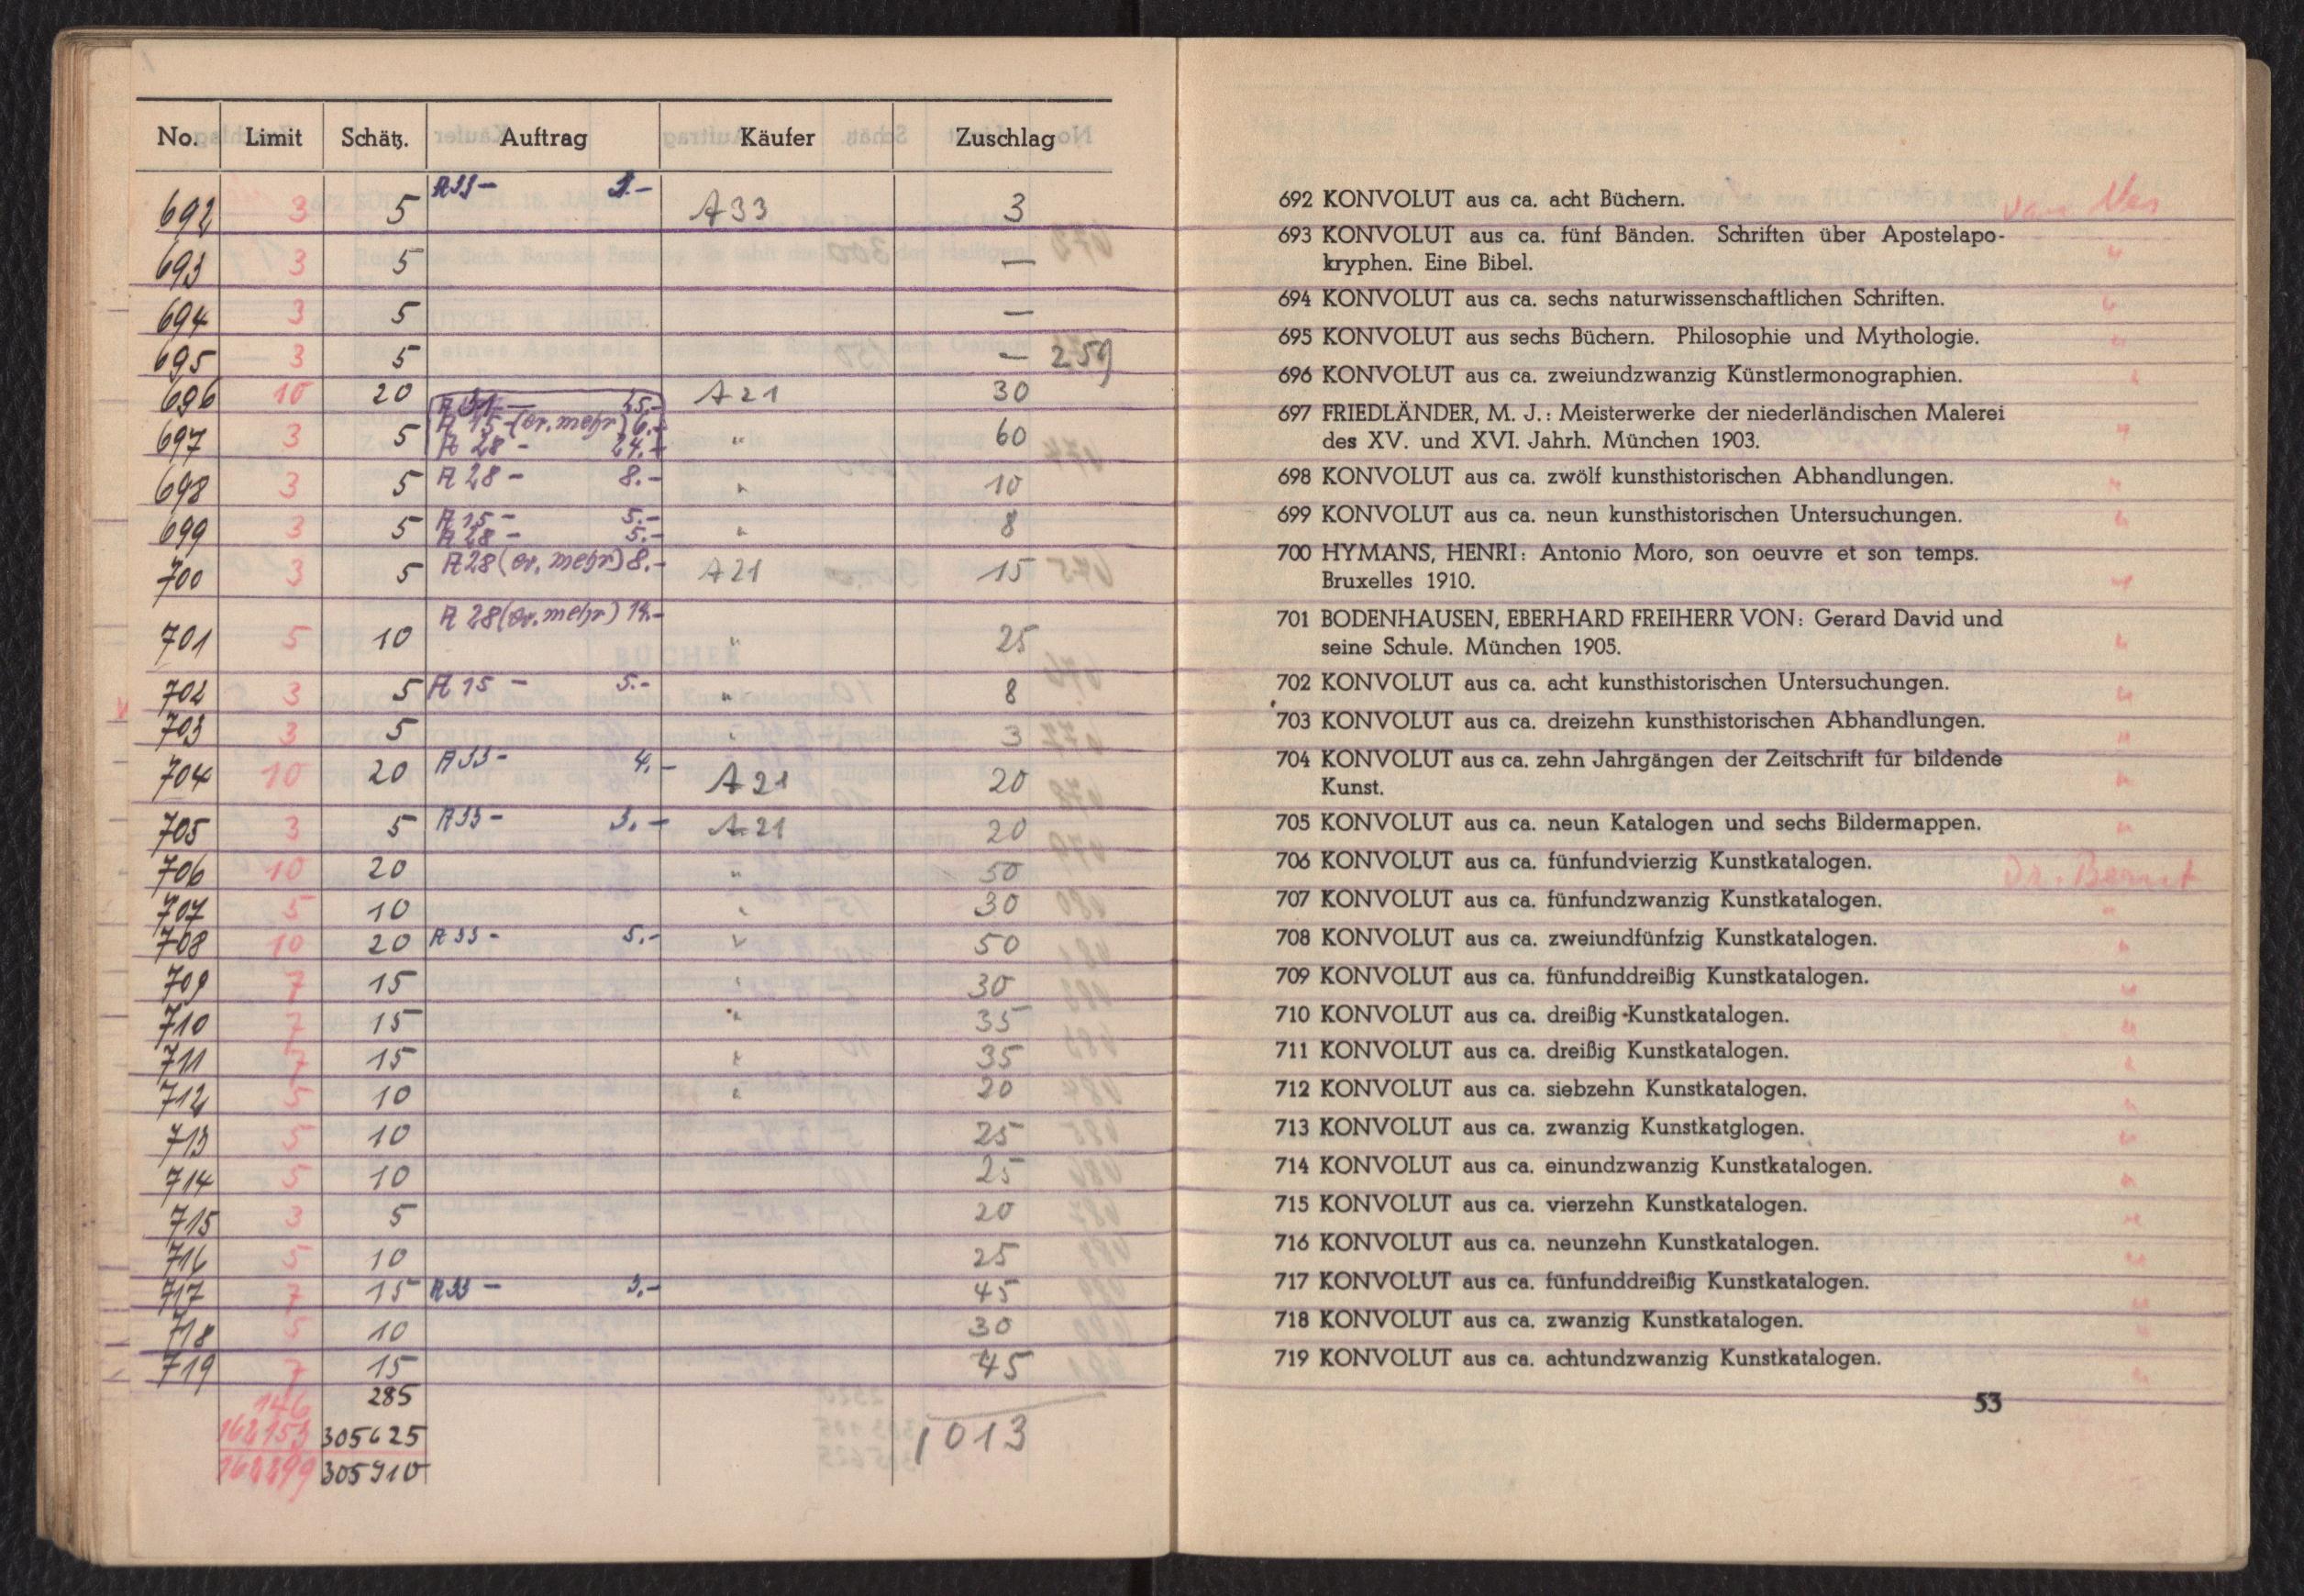 No. Limit Schätz. Auftrag Käufer Zuschlag
692 3 5 A33 – 3.- A33 3
693 3 5 —
694 3 5 —
695 3 5 — 259
696 10 20 A21 30
697 3 5 A 15 – (ev. mehr) 6.- A 28 – 24.- " 60
698 3 5 A 28 – 8.- " 10
699 3 5 A 15 – 5.- A 28 – 5.- " 8
700 3 5 A28 (ev. mehr) 8.- A21 15
701 5 10 A 28 (ev. mehr) " 25
702 3 5 A 15 – 5.- " 8
703 3 5 " 3
704 10 20 A33 – 4.- A21 20
705 3 5 A33 – 3.- A21 20
706 10 20 " 50
707 5 10 " 30
708 10 20 A33 – 5.- " 50
709 7 15 " 30
710 7 15 " 35
711 7 15 " 35
712 5 10 " 20
713 5 10 25
714 5 10 25
715 3 5 20
716 5 10 25
717 7 15 A33 – 3.- 45
718 5 10 30
719 7 15 45
146 285
162153 305625 1013
305910
692 KONVOLUT aus ca. acht Büchern.
693 KONVOLUT aus ca. fünf Bänden. Schriften über Apostelapo-
kryphen. Eine Bibel. "
694 KONVOLUT aus ca. sechs naturwissenschaftlichen Schriften. "
695 KONVOLUT aus sechs Büchern. Philosophie und Mythologie. "
696 KONVOLUT aus ca. zweiundzwanzig Künstlermonographien. "
697 FRIEDLÄNDER, M. J.: Meisterwerke der niederländischen Malerei
des XV. und XVI. Jahrh. München 1903. "
698 KONVOLUT aus ca. zwölf kunsthistorischen Abhandlungen. "
699 KONVOLUT aus ca. neun kunsthistorischen Untersuchungen. "
700 HYMANS, HENRI: Antonio Moro, son oeuvre et son temps.
Bruxelles 1910. "
701 BODENHAUSEN, EBERHARD FREIHERR VON: Gerard David und
seine Schule. München 1905. "
702 KONVOLUT aus ca. acht kunsthistorischen Untersuchungen. "
703 KONVOLUT aus ca. dreizehn kunsthistorischen Abhandlungen. "
704 KONVOLUT aus ca. zehn Jahrgängen der Zeitschrift für bildende
Kunst. "
705 KONVOLUT aus ca. neun Katalogen und sechs Bildermappen. "
706 KONVOLUT aus ca. fünfundvierzig Kunstkatalogen. Dr. Bernt
707 KONVOLUT aus ca. fünfundzwanzig Kunstkatalogen. "
708 KONVOLUT aus ca. zweiundfünfzig Kunstkatalogen. "
709 KONVOLUT aus ca. fünfunddreißig Kunstkatalogen. "
710 KONVOLUT aus ca. dreißig Kunstkatalogen. "
711 KONVOLUT aus ca. dreißig Kunstkatalogen. "
712 KONVOLUT aus ca. siebzehn Kunstkatalogen. "
713 KONVOLUT aus ca. zwanzig Kunstkatglogen. "
714 KONVOLUT aus ca. einundzwanzig Kunstkatalogen. "
715 KONVOLUT aus ca. vierzehn Kunstkatalogen. "
716 KONVOLUT aus ca. neunzehn Kunstkatalogen. "
717 KONVOLUT aus ca. fünfunddreißig Kunstkatalogen. "
718 KONVOLUT aus ca. zwanzig Kunstkatalogen. "
719 KONVOLUT aus ca. achtundzwanzig Kunstkatalogen. "
53